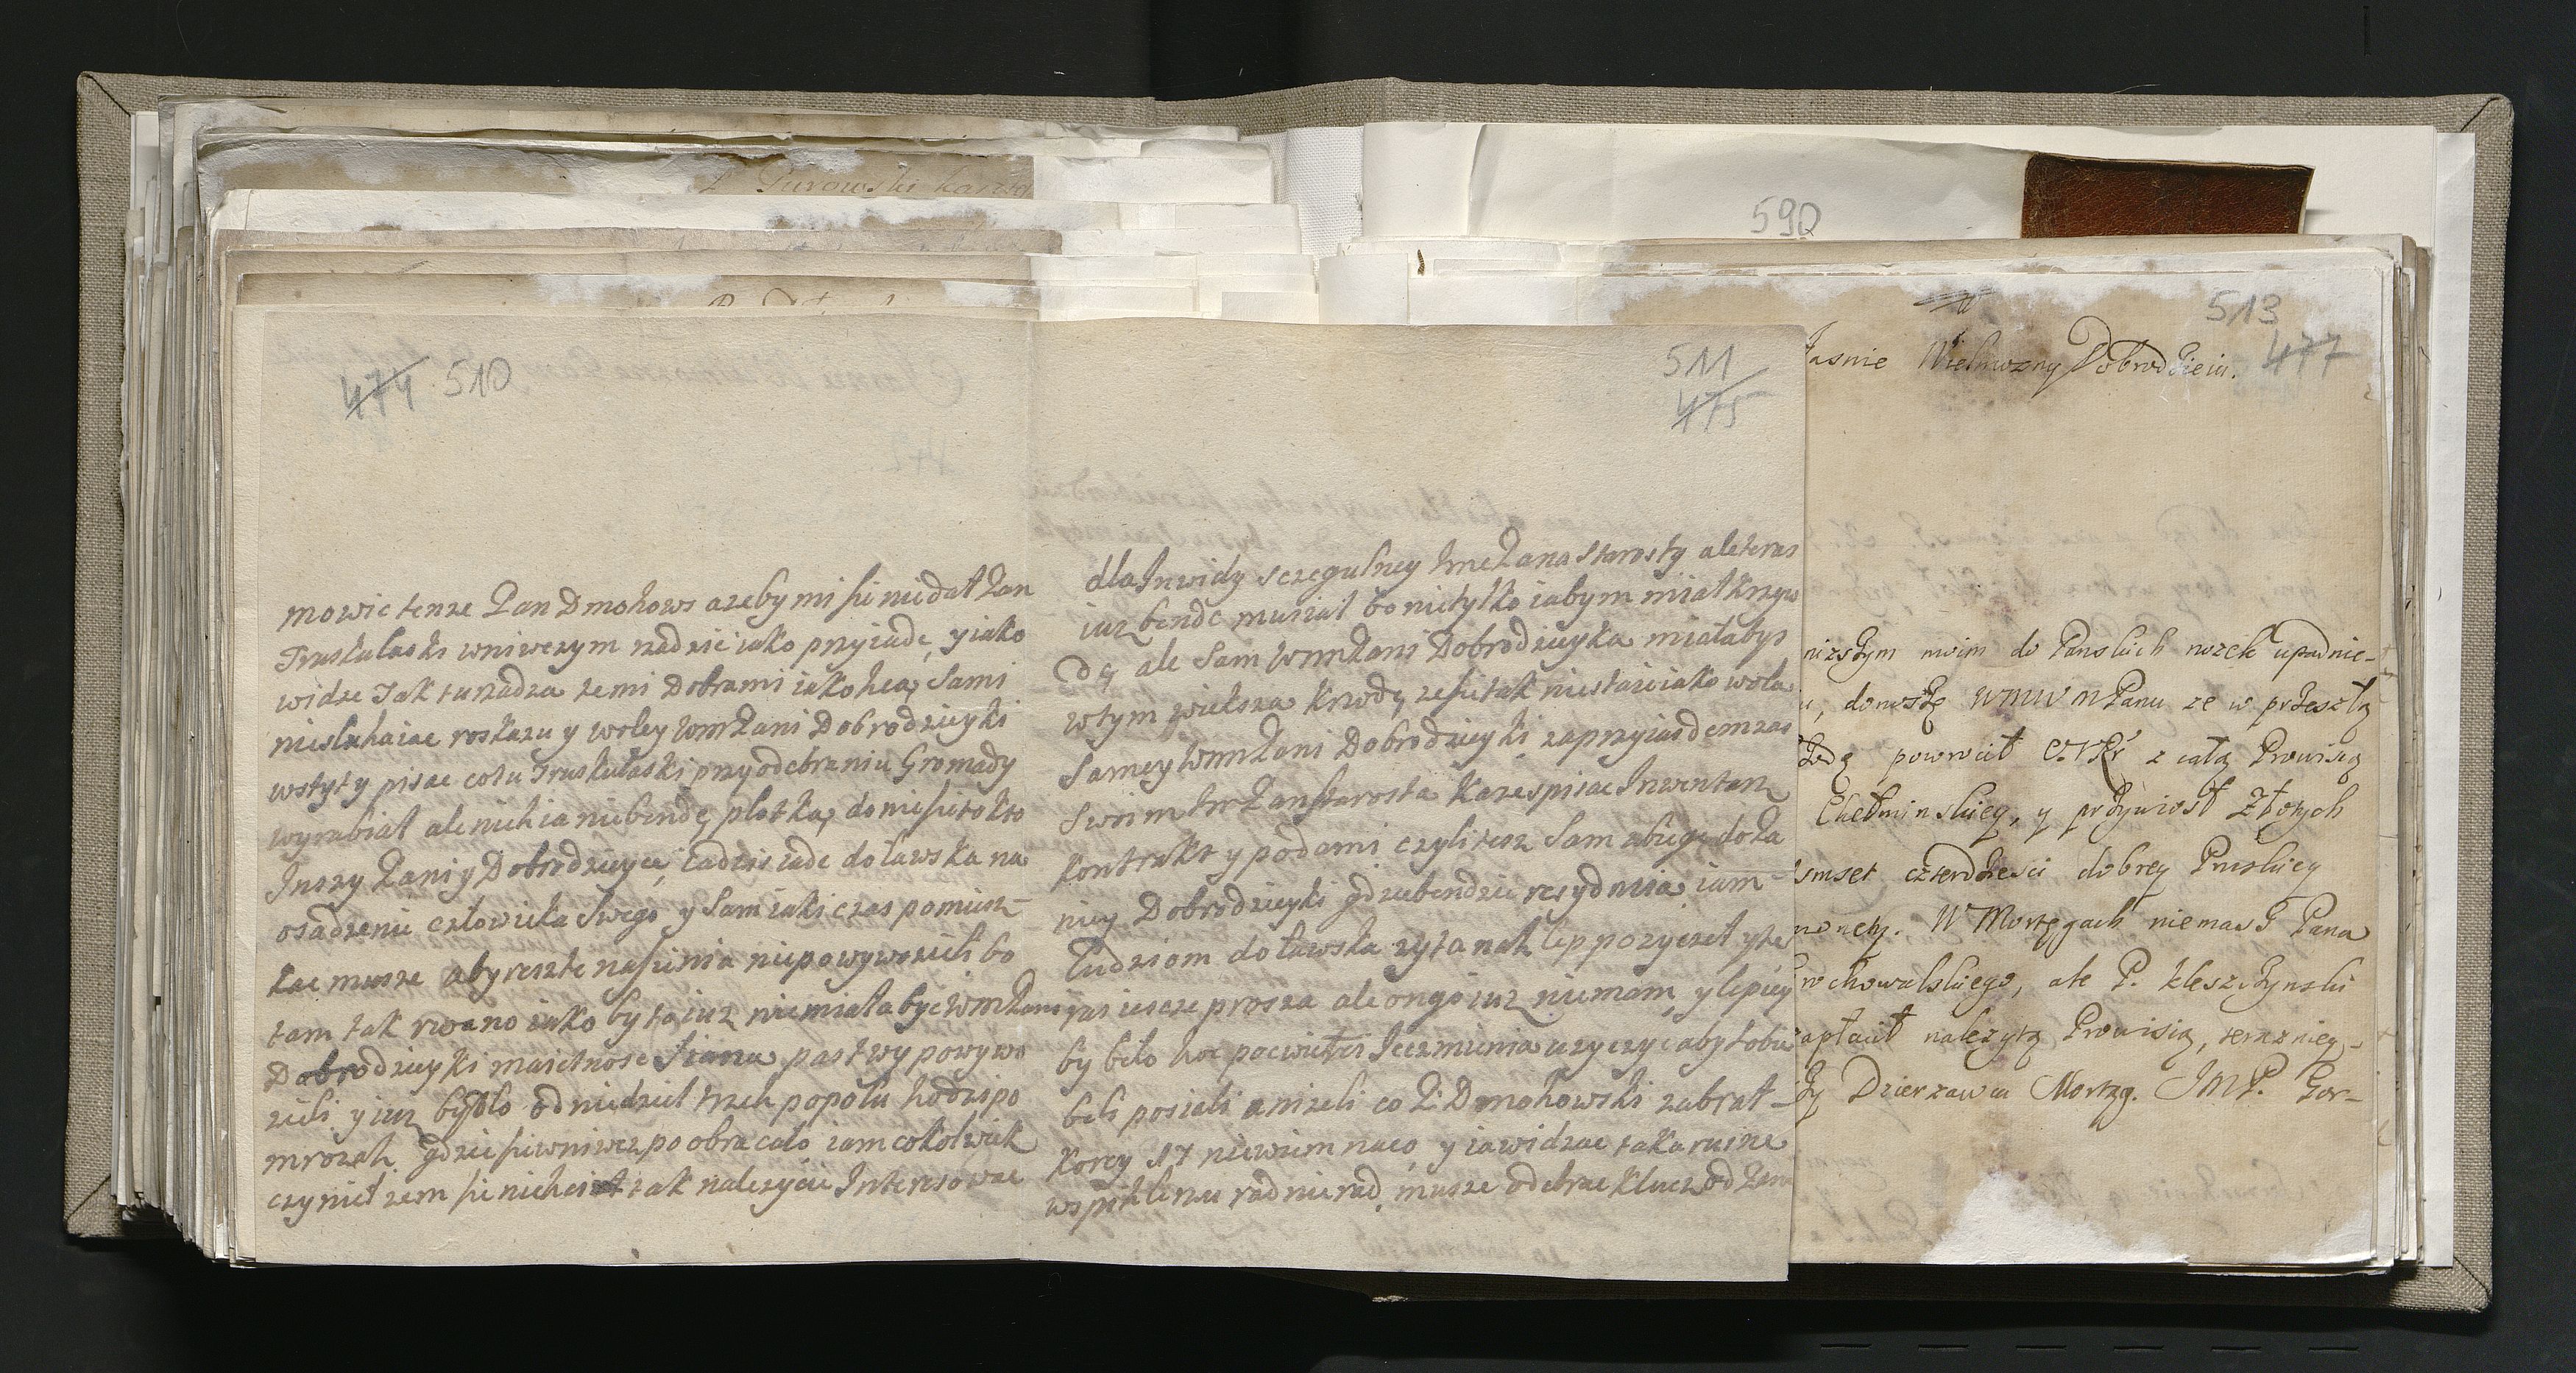 P Gurowski
590
474 510
mowic tenze Pan Dmohows azeby mi sie niedał Pan
Truskulaski wniwczym radzic iako przyiade, y iako
widze Jak tu rzadza temi Dobrami iako hca, Sami
niesluhaiac roskazu y woley WmPani Dobrodzieyki
wstyty pisac co tu Truskułaski przy odebraniu Gromady
wyrabiał ale nieh ia niebende, plotka, doniesie to kto
Jnszy Paniy Dobrodzieyce, Ja dzis iade do Ławska na
osadzenie człowieka Swego y Sam iaki czas pomiesz-
kac musze aby reszte nasienia niepowywozieli bo
tam tak rwano iako by ta iuz niemiała byc WmPani
Dobrodzieyki maietnosc Siana pastwy powywo
zieli y iuz bydło od niedziel trzeh popolu hodzi po
mrozah. gdzie sie wniwcz poobracało iam cokolwiek
czynieł zem sie niehciał tak nalezycie Jnteresowac
511
475
dla Jnwidy sczegulney JmePana Starosty ale teras
iuz bende musiał bo nietylko iabym miał krzyw
dę ale Sam WmPani Dobrodzieyka miałabys
wtym zwieksza krzwdę, ze sie tak niestaie iako wola
Samey WmPani Dobrodzieyki zaprzyiasdem zas
Swoim JmPan Starosta kaze spisac Jnwentarz
Kontrakt y poda mi czyli tesz Sam zbiegę do Pa
niey Dobrodzieyki gdzie bendzie resydnia, iam-
ludziom do Ławska zyta nah lep pozyczeł y te
ras iescze prosza ale ongo iuz niemam, y lepiey
by beło hoc poewierci Jeczmienia uzyczyc aby sobie
beli posiali anizeli co P. Dmohowski zabrał-
Korcy 17 niewiem naco, y ia widzac taka ruine
wspihlerzu rad nierad, musze odebrac klucz od Pana
513
477
Jasnie Wielmozny Dobrodzieiu.
nizszym moim do Panskich nozek upadnie-
u, donoszę WMWMPanu ze w przeszłą
powrocił z całą Prowisią
Chełminskieg, y przywiosł Złotych
smset czterdziesci dobrey Pruskiey
monety. W Mortęgach niemasz Pana
rochowalskiego, ale P. Kleszczynski
zapłacił nalezytą Prowisią, teraznieg-
szy Dzierzawca Mortzg. JMP. Gor-